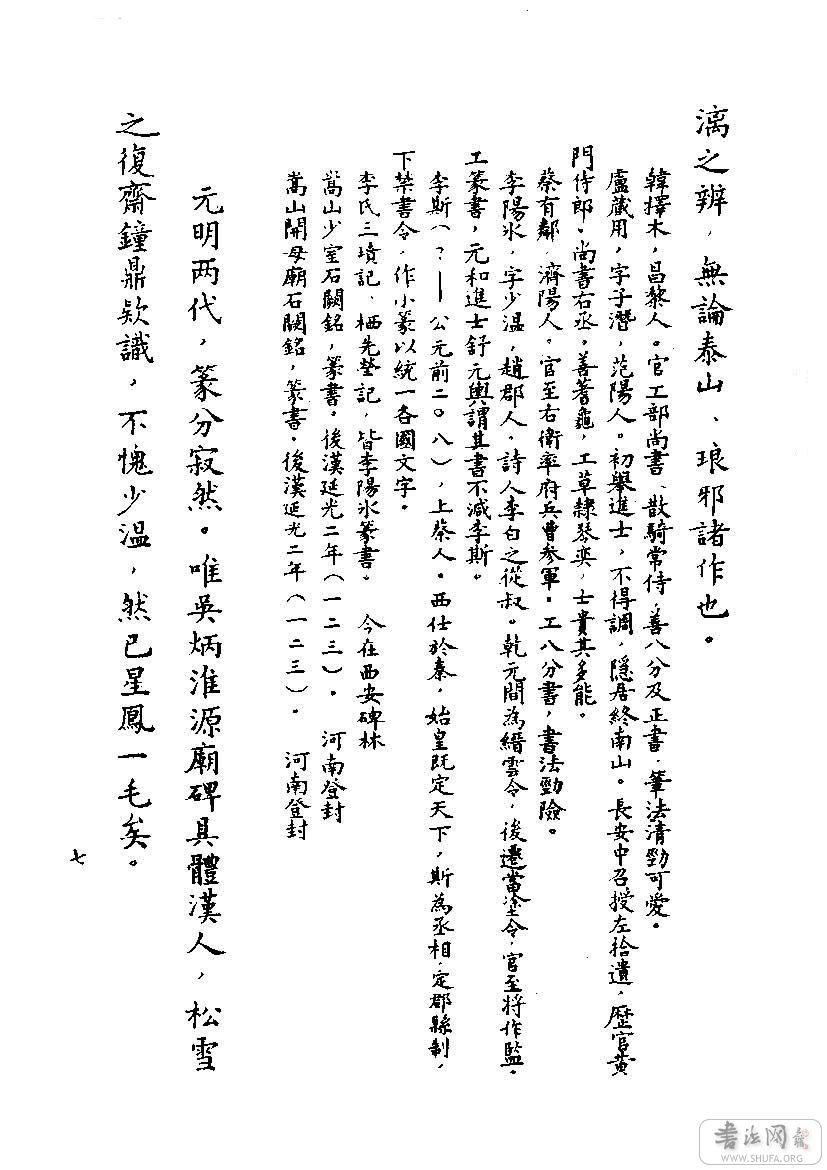 漓之辨，無論泰山、琅邪諸作也。
韓擇木，昌黎人。官工部尚書、散騎常侍，善八分及正書，筆法清勁可愛。
盧藏用，字子潛，范陽人。初舉進士，不得調，隱居終南山。長安中召授左拾遺，歷官黃
門侍郎。尚書右丞。善蓍龜，工草隸琴奕，士貴其多能。
蔡有鄰，濟陽人。官至右衛率府兵曹參軍。工八分書，書法勁險。
李陽冰，字少溫，趙郡人，詩人李白之從叔。乾元間為縉雲令，後遷當塗令，官至將作監。
工篆書，元和進士舒元輿謂其書不減李斯。
李斯（？——公元前二〇八），上蔡人。西仕於秦，始皇既定天下，斯為丞相，定郡縣制，
下禁書令，作小篆以統一各國文字。
李氏三墳記、栖先塋記，皆李陽冰篆書。 今在西安碑林
嵩山少室石闕銘，篆書。後漢延光二年（一二三）。 河南登封
嵩山開母廟石闕銘，篆書。後漢延光二年（一二三）。 河南登封
元明两代，篆分寂然。唯吳炳淮源廟碑具體漢人，松雪
之復齋鐘鼎欵識，不愧少溫，然已星鳳一毛矣。
七
書法网
WWW.SHUFA.ORG